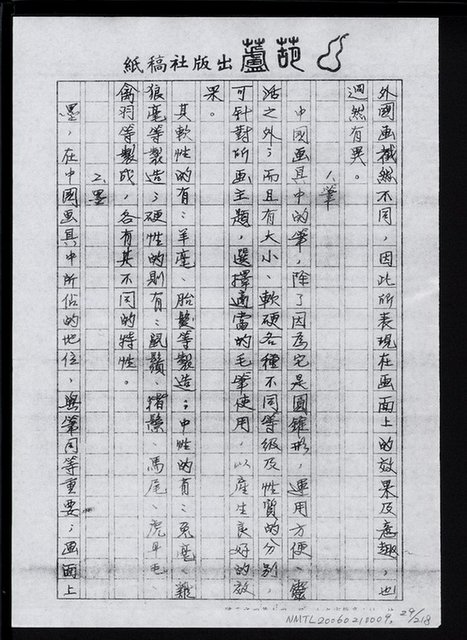 紙稿社版出蘆葫
外國画截然不同，因此所表現在画面上的效果及意趣，也
迥然有異。
1.筆
中國画具中的筆，除了因為它是圓錐形，運用方便、靈
活之外；而且有大小、軟硬各種不同等級及性質的分別，
可針對所画主題，選擇適當的毛筆使用，以產生良好的效
果。
其軟性的有：羊毫、胎髮等製造；中性的有：兔毫、雞
狼毫等製造；硬性的則有：鼠鬚、豬鬃、馬尾、虎毛、
禽羽等製成，各有其不同的特性。
2.墨
墨，在中國畫具中所佔的地位，與筆同等重要；画面上
NMTL20060210009. 29/218